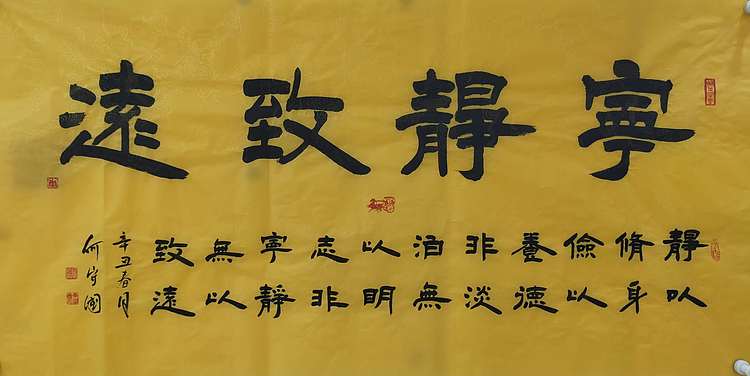 寧靜致遠
靜以
脩身
儉以
養德
非淡
泊無
以明
志非
寧靜
無以
致遠
辛丑春月
何守國